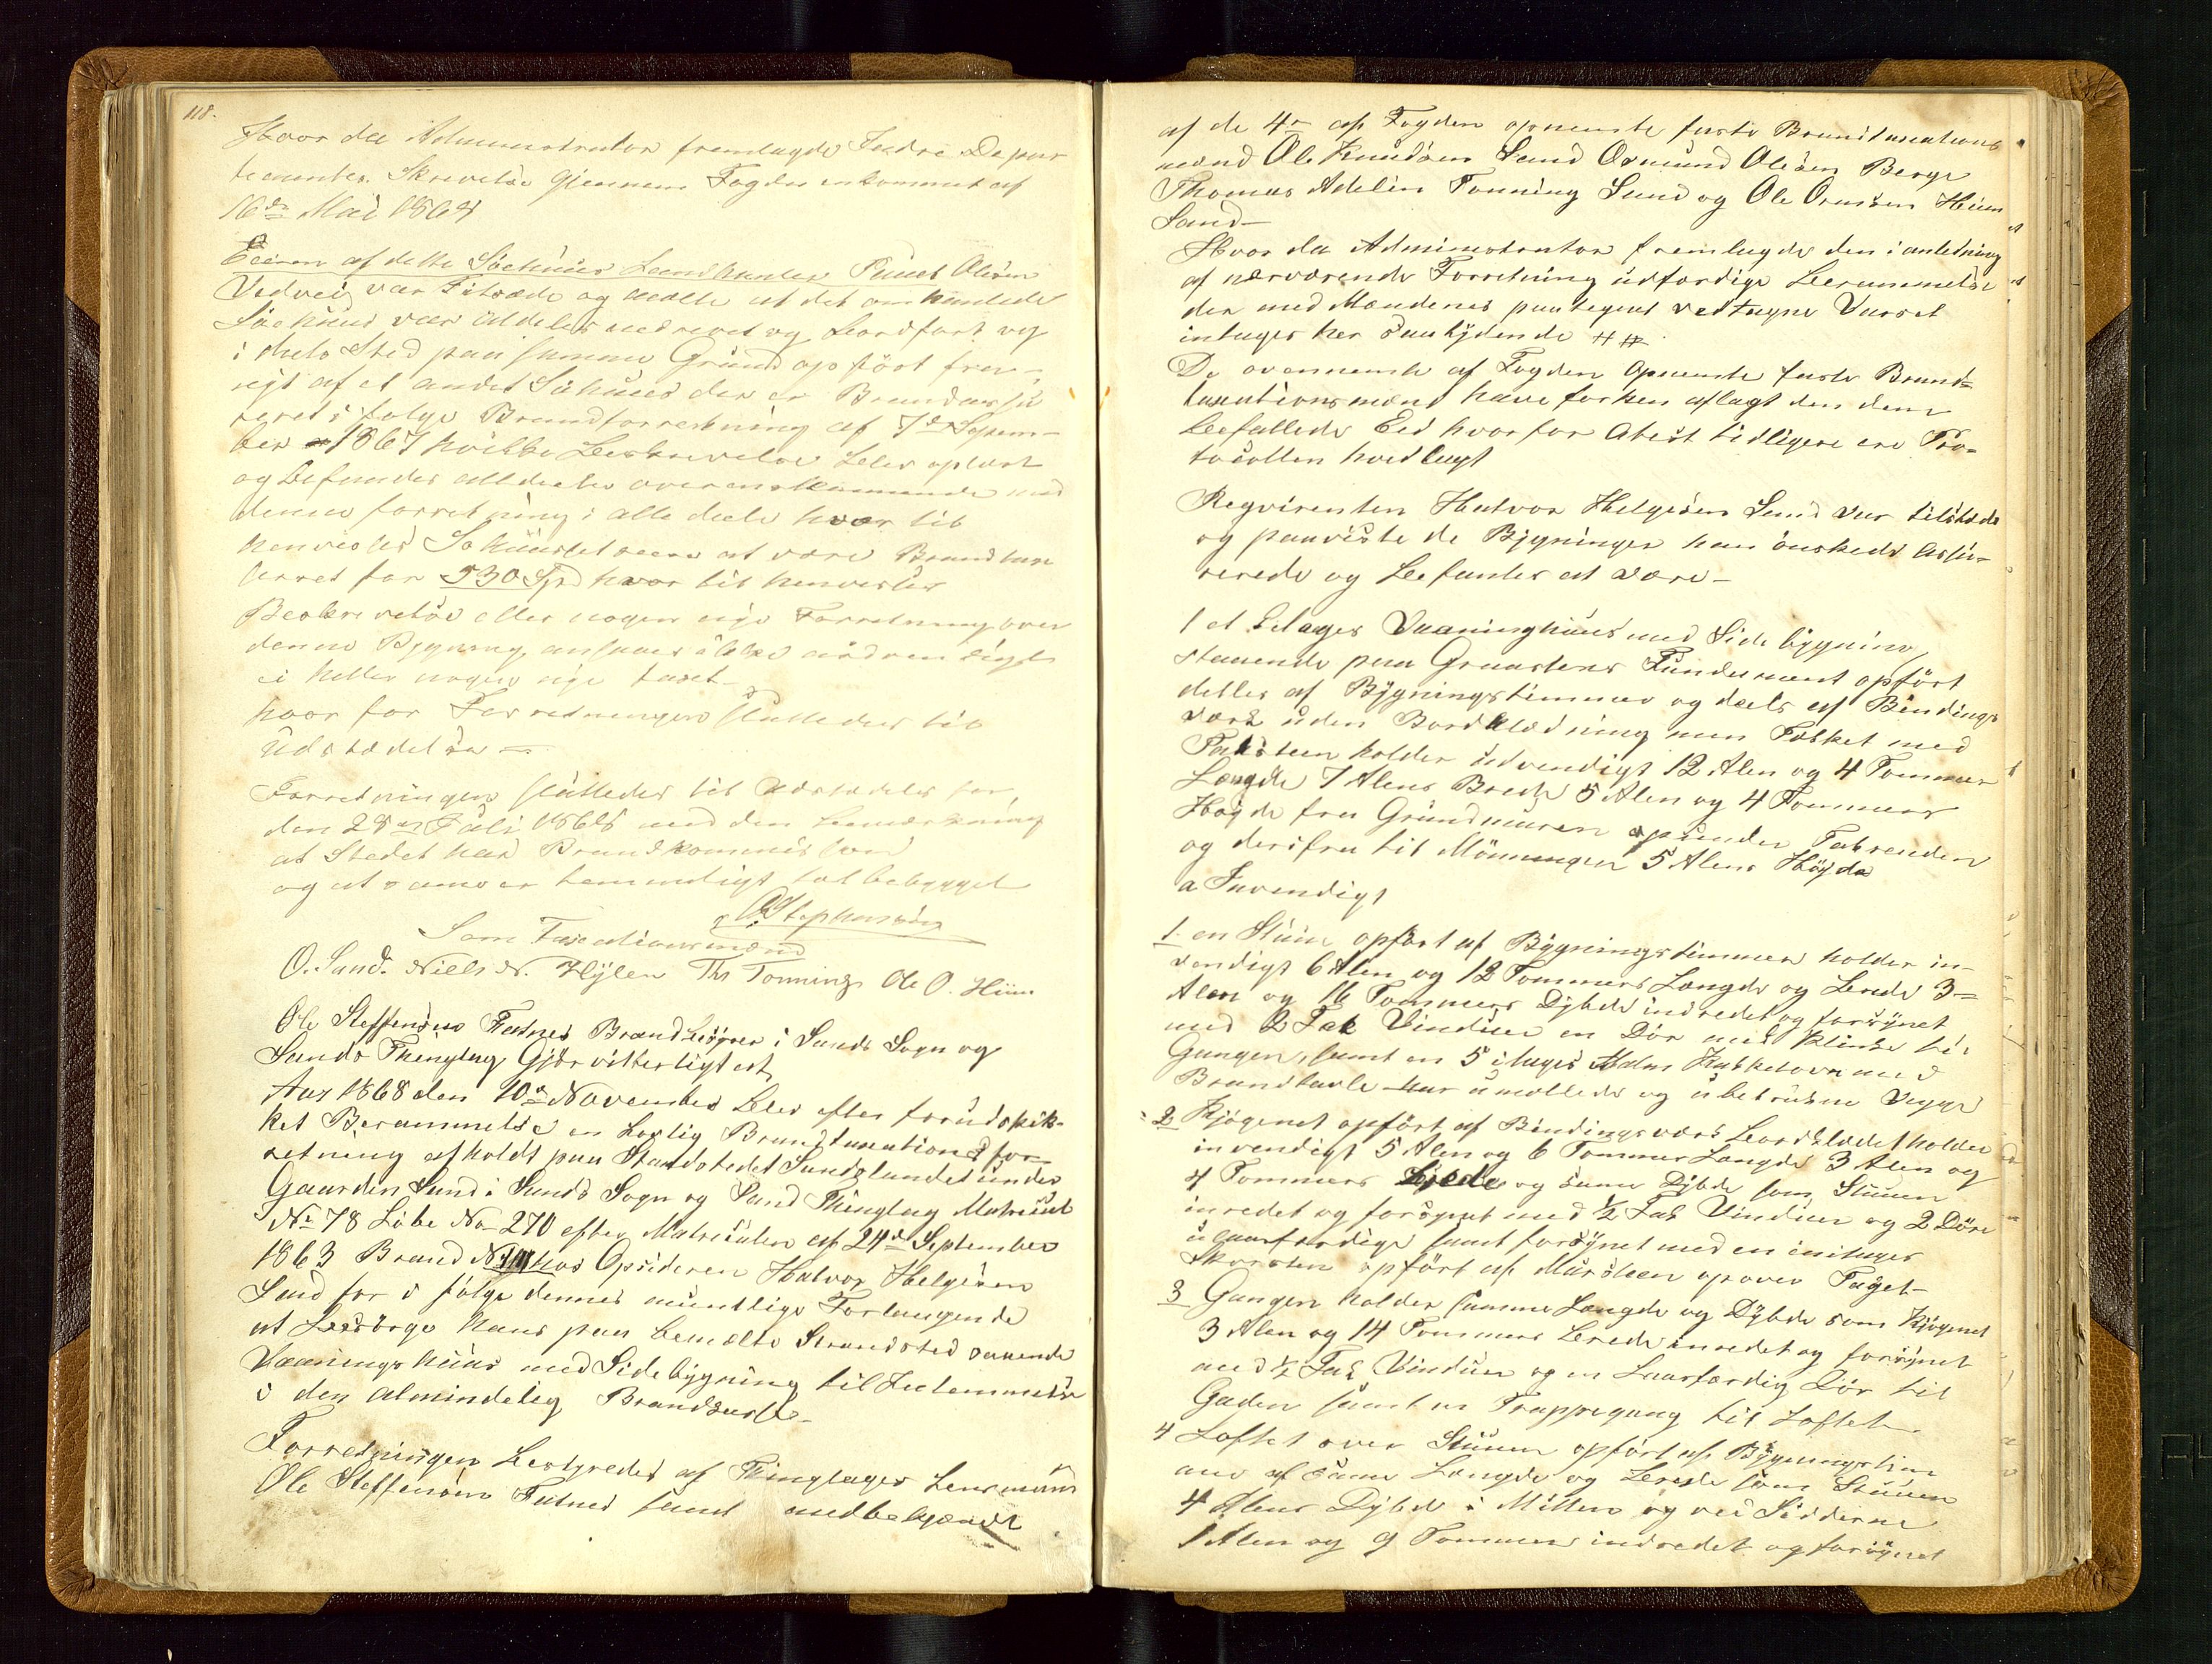 118.
Hvor da Administrator fremlagde Indre Depar
tementes Skrivelse gjennem Fogden inkommet af
16de Mai 1864
Eeieren af dette Søehuus Landhandler Knud Olesen
Vedvei var Tilstæde og meldte at det omhandlede
Søehuus var aldeles nedrevet og bordført og
i dets Sted paa samme Grund opført
af et andet Søhuus der er Brandassu
reret i følge Brandforretning af 7de Septem-
ber 1867 hvilke Beskrivelse blev oplæst
og befandes aldeeles overensstemmende med
denne forretning i alle deele hvor til
henvises Søhuuset at være Brand taxe
erret for 530 Spd hvor til henvises
Beskrivelse eller nogen nye Forretning over
denne Bygning ansaaes ikke nødvendigt
ei heller nogen nye taxt
hvor for Forretningen sluttedes til
Udstædelse
Forretningen sluttedes til Udstædelse for
den 28de Juli 1868 med den bemærkning
at Stedet har Brandkommission
og at samme er temmeligt tæt bebygget
O Stephensen
Som Taxationsmænd
O. Sand. Niels N. Hylen Ths Tonning Ole O. Hiim
Ole Steffensen Fatnes Brandbestyrer i Sands Sogn og
Sands Thinglag Gjør vitterligt at
Aar 1868 den 10de November blev efter forudskik-
ket Berammelse en Lovlig Brandtaxationsfor-
retning afholdt paa Strandstedet Sandslandet under
Gaarden Sand i Sands Sogn og Sand Thinglag Matricul
No 78 Løbe No 270 efter Matriculen af 24de September
1863 Brand No hos Opsideren Halvor Helgesen
Sand for i følge dennes muntlige Forlangende
at besørge hans paa bemeldte Strandsted staaende
Vaaningshuus med Sidebygning til Indlemmelse
i den almindelig Brandkasse-
Forretningen bestyredes af Thinglagets Lensmand
Ole Steffensen Fatnes samt medbekjendt
af de 4re af Fogden opnævnte faste Brandtaxations
mænd Ole Knudsen Sand Osmund Olesen Berge
Thomas Adelin Tonning Sand og Ole Ormsen Hiim
Sand-
Hvor da Administrator fremlagde den i anledning
af nærværende Forretning udfærdige Berammelse
der med Mændenes paategnet vedtagne Varsel
intages her saalydende ##
De ovennevnte af Fogden Opnevnte faste Brand-
taxationsmænd have forhen aflagt den dem
befallede Eed hvorfor Atest tidligere ere Pro-
tocollen hvedlagt
Reqvirenten Halvor Helgesen Sand var tilstæde
og paaviste de Bygninger han ønskede assu-
rerede og befantes at være-
1 et Eetages Vaaninghuus med Side bygning
staaende paa Graasteens Fundament opført
delles af Bygningstimmer og deels af Bindings
værk uden Bordklædning men Tækket med
Taksteen holder udvendigt 12 Alen og 4 Tommer
Længde 7 Alens Brede 5 Alen og 4 Tommers
Høyde fra Grundmuren opunder Takrenden
og derifra til Mønningen 5 Alens Høyde
a Invendigt
1. en Stue opført af Bygningstimmer holder in-
vendigt 6 Alen og 12 Tommers Længde og brede 3-
Alen og 16 Tommers Dybde indredet og forsynet
med 2 Fak Vinduer en Dør med Klinke til
Gangen, samt en 5 itages Kakkelovn med
Brandtavle har umallede og ubetrukne Vegge
2 Kjøgenet opført af Bindingsværk bordklædet holder
invendigt 5 Alen og 6 Tommer Længde 3 Alen og
4 Tommers Brede og samme Dybde som Stuen
inredet og forsynet med ½ Fak Vinduer og 2 Døre
ulaasfærdige samt forsynet med en initages
Skorsten opført af Mursteen opover Taget-
3 Gangen holder samme Længde og Dybde som Kjøgenet
3 Alen og 14 Tommers brede inredet og forsynet
med ½ Fak Vinduer og en Laasfærdig Dør til
Gaden samt en Trappegang til Loftet
4 Loftet over Stuen opført af Bygningstim
mer af samme Længde og brede som Stuen
4 Alens Dybde i Mitten og ved Sidderne
1 Alen og 9 Tommers indredet og forsynet